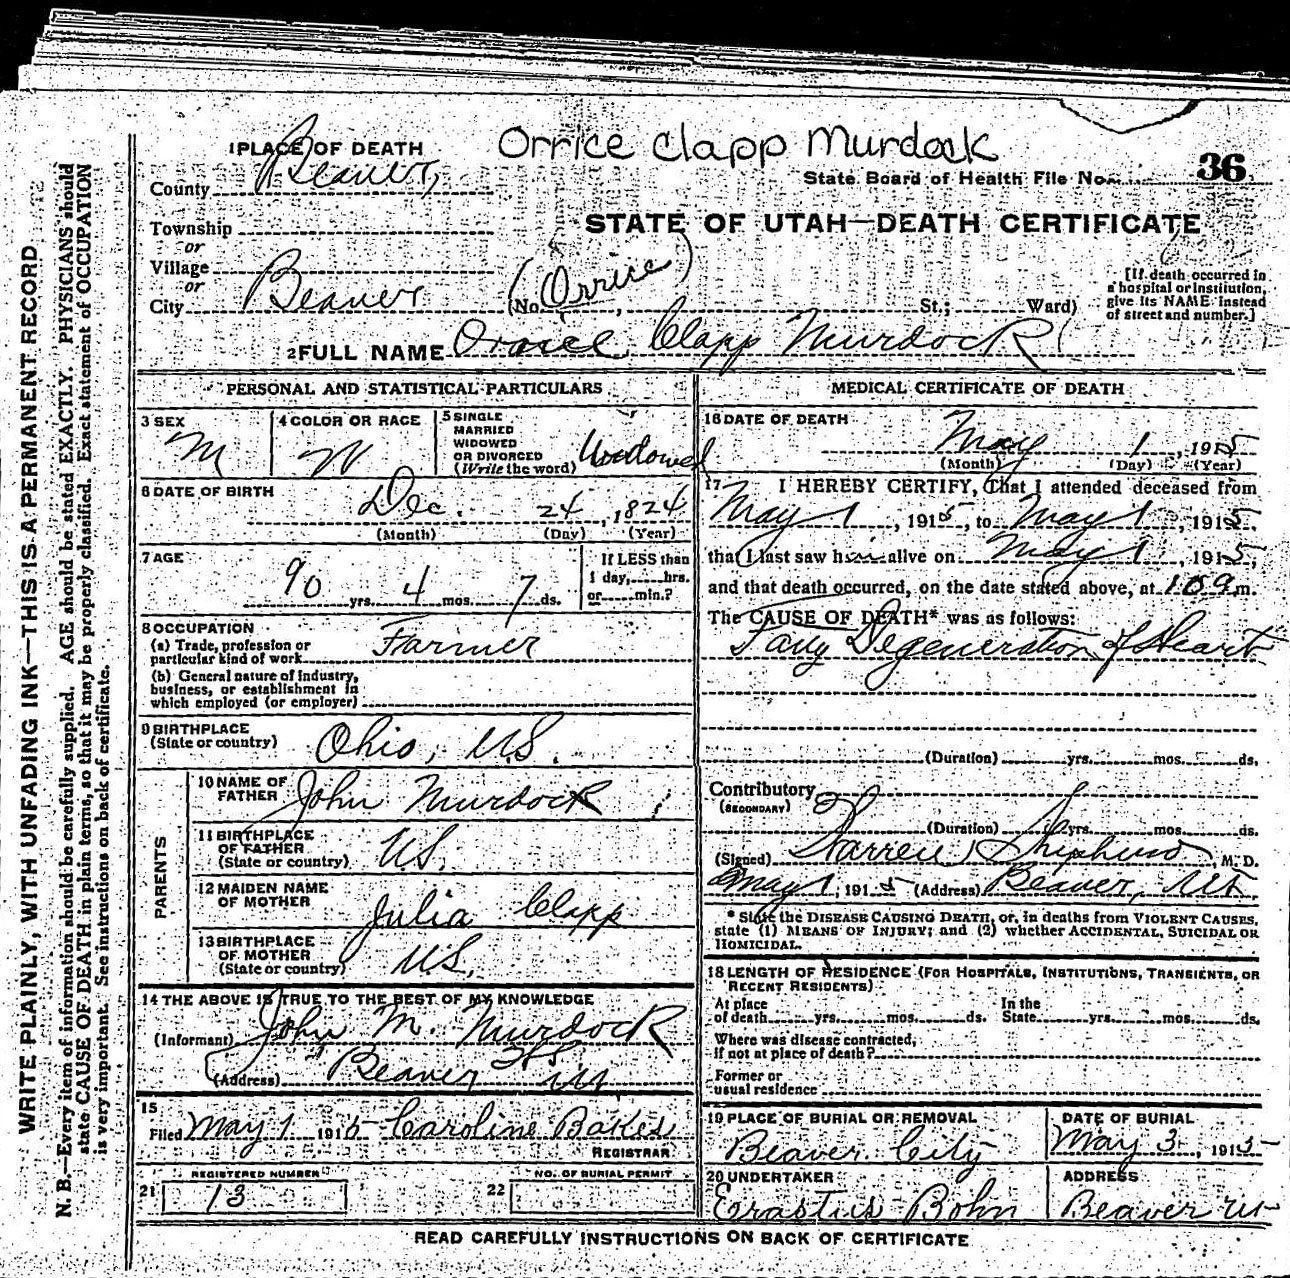 Orrice Clapp Murdock
1 PLACE OF DEATH
County Beaver,
State Board of Health File No. 36
Township
or
Village
or
City Beaver
STATE OF UTAH—DEATH CERTIFICATE
(No. , St.; Ward)
(Orrice)
[If death occurred in
a hospital or institution,
give its NAME instead
of street and number.]
2 FULL NAME Clapp Murdock
PERSONAL AND STATISTICAL PARTICULARS
3 SEX M
4 COLOR OR RACE W
5 SINGLE
MARRIED
WIDOWED
OR DIVORCED
(Write the word) Widowed
6 DATE OF BIRTH
Dec. 24, 1824
(Month) (Day) (Year)
7 AGE
90 yrs. 4 mos. 7 ds.
If LESS than
1 day, hrs.
or min.?
8 OCCUPATION
(a) Trade, profession or
particular kind of work Farmer
(b) General nature of industry,
business, or establishment in
which employed (or employer)
9 BIRTHPLACE
(State or country) Ohio, U.S.
PARENTS
10 NAME OF
FATHER John Murdock
11 BIRTHPLACE
OF FATHER
(State or country) U.S.
12 MAIDEN NAME
OF MOTHER Julia Clapp
13 BIRTHPLACE
OF MOTHER
(State or country) U.S.
14 THE ABOVE IS TRUE TO THE BEST OF MY KNOWLEDGE
(Informant) John M. Murdock
(Address) Beaver Ut
15
Filed May 1 1915 Caroline Bakes
REGISTRAR
REGISTERED NUMBER
21 13
NO. OF BURIAL PERMIT
22
MEDICAL CERTIFICATE OF DEATH
16 DATE OF DEATH
May 1, 1915
(Month) (Day) (Year)
17 I HEREBY CERTIFY, That I attended deceased from
May 1, 1915, to May 1, 1915,
that I last saw him alive on May 1, 1915,
and that death occurred, on the date stated above, at m.
The CAUSE OF DEATH* was as follows:
Degeneration of Heart
(Duration) yrs. mos. ds.
Contributory
(SECONDARY)
(Duration) yrs. mos. ds.
(Signed) Warren Shepherd, M. D.
May 1, 1915 (Address) Beaver, Ut
* State the DISEASE CAUSING DEATH, or, in deaths from VIOLENT CAUSES,
state (1) MEANS OF INJURY; and (2) whether ACCIDENTAL, SUICIDAL OR
HOMICIDAL.
18 LENGTH OF RESIDENCE (FOR HOSPITALS, INSTITUTIONS, TRANSIENTS, OR
RECENT RESIDENTS)
At place
of death yrs. mos. ds.
In the
State yrs. mos. ds.
Where was disease contracted,
if not at place of death?
Former or
usual residence
19 PLACE OF BURIAL OR REMOVAL
Beaver City
DATE OF BURIAL
May 3, 1915
20 UNDERTAKER
Erastus Bohn
ADDRESS
Beaver Ut
READ CAREFULLY INSTRUCTIONS ON BACK OF CERTIFICATE
WRITE PLAINLY, WITH UNFADING INK—THIS IS A PERMANENT RECORD
N. B.—Every item of information should be carefully supplied. AGE should be stated EXACTLY. PHYSICIANS should
state CAUSE OF DEATH in plain terms, so that it may be properly classified. Exact statement of OCCUPATION
is very important. See instructions on back of certificate.